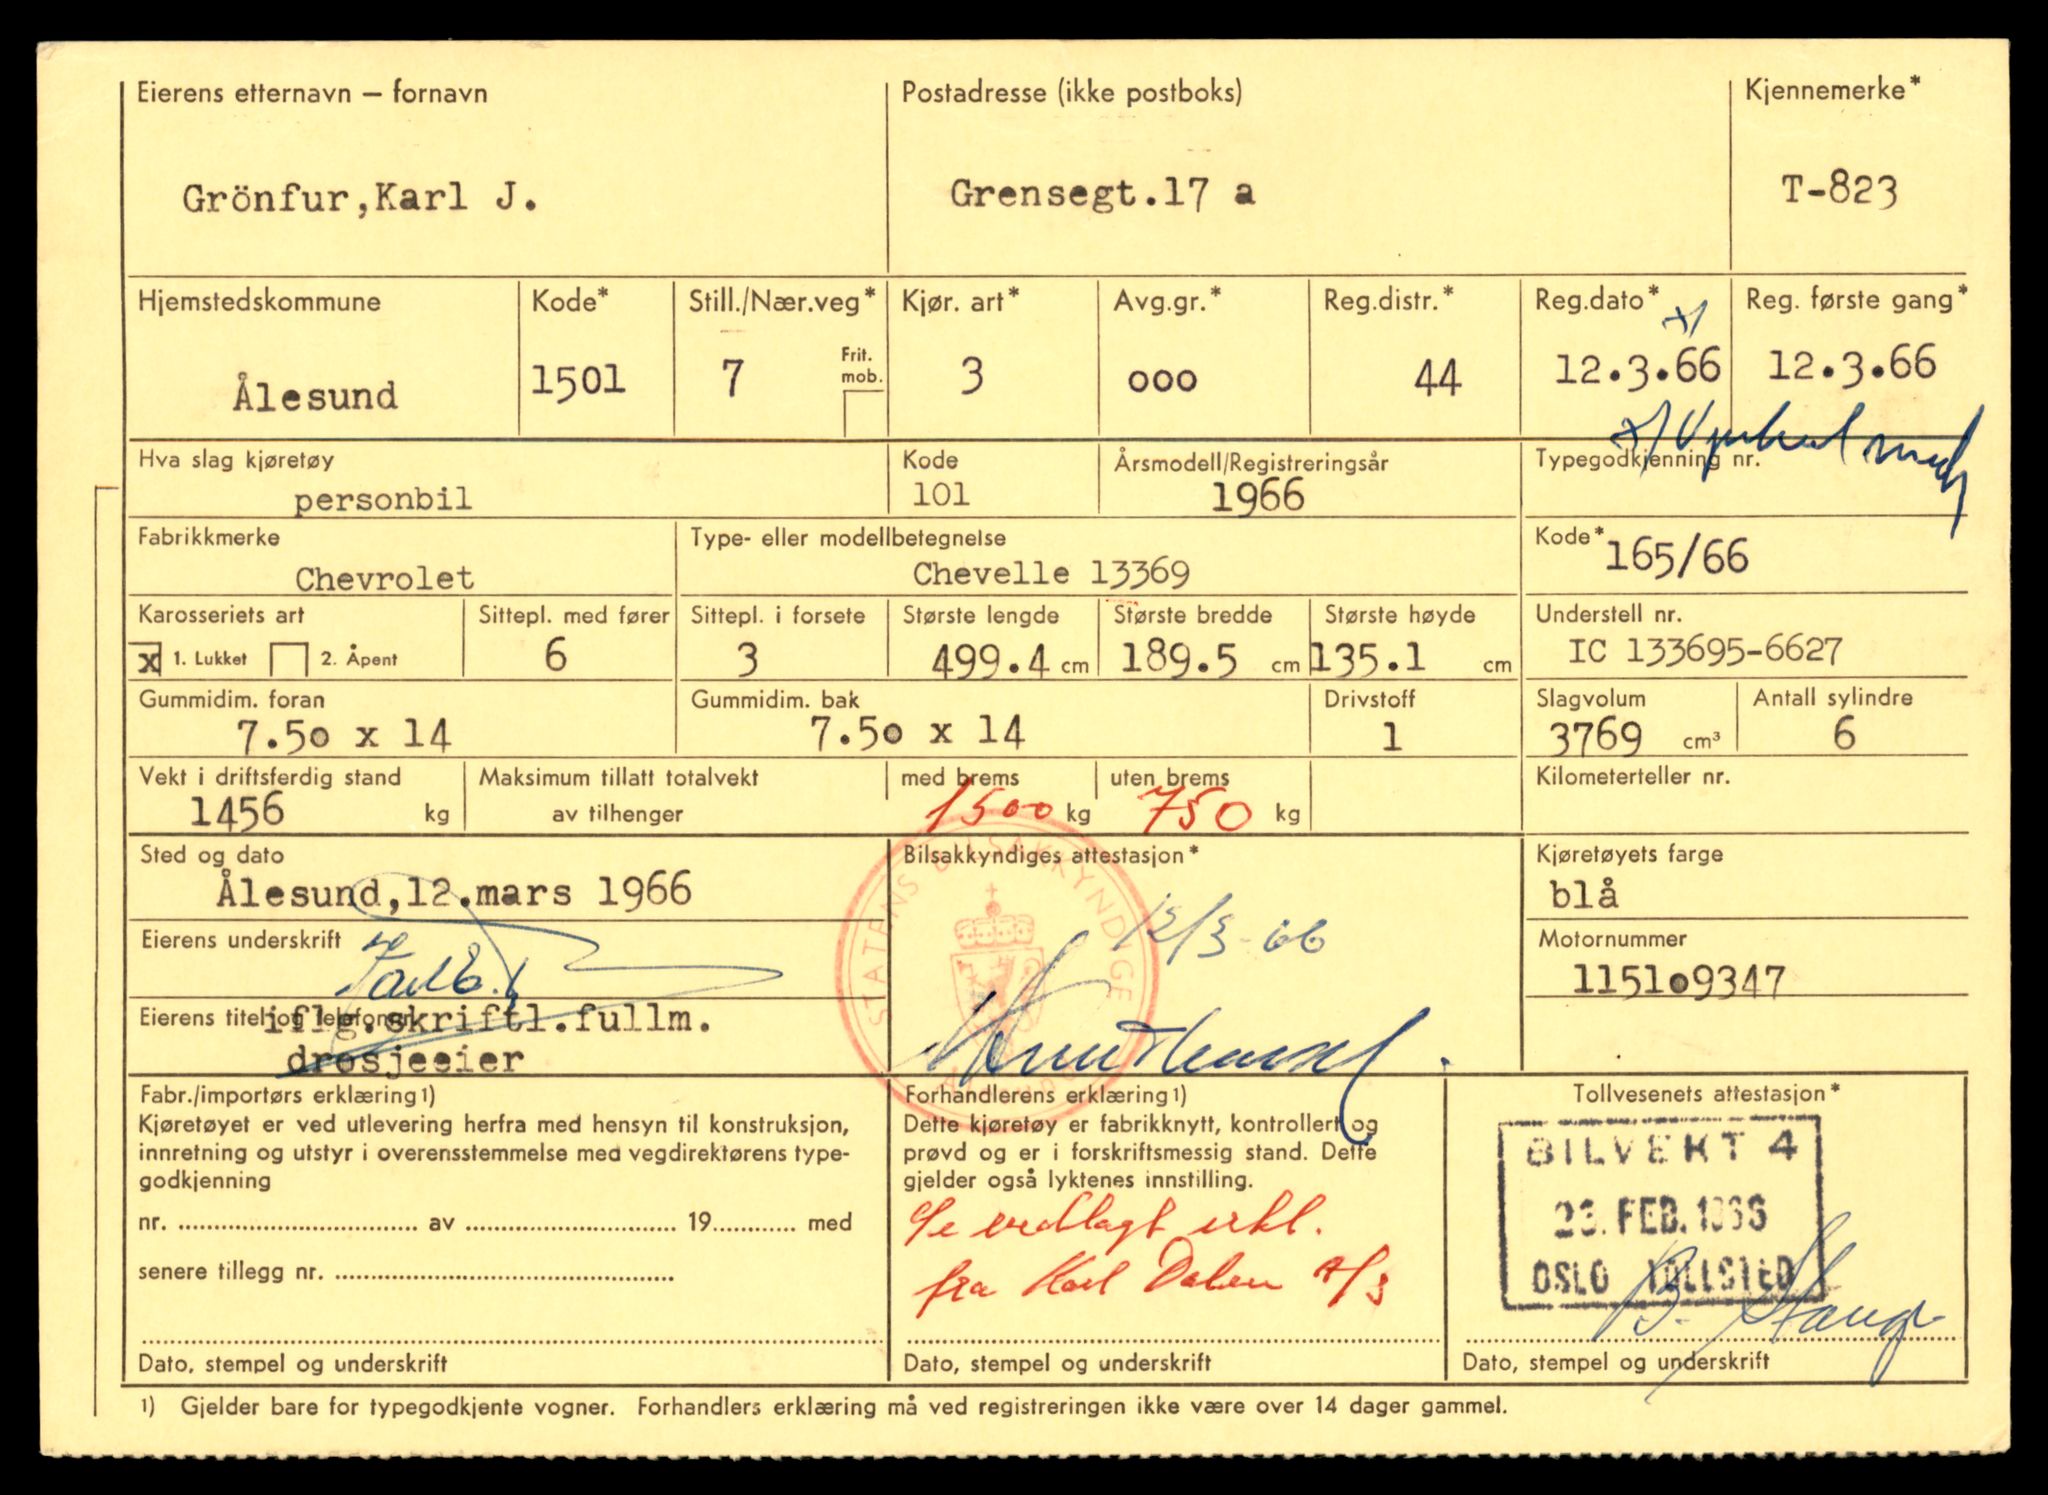 Eierens etternavn — fornavn Postadresse (ikke postboks) Kjennemerke*
Grönfur,Karl J. Grensegt.17 a T-823
Hjemstedskommune Kode* Still./Nær.veg* Kjør. art* Avg.gr.* Reg.distr.* Reg.dato* Reg. første gang*
Frit. mob.
Ålesund 1501 7 3 ooo 44 12.3.66 12.3.66
Hva slag kjøretøy Kode Årsmodell/Registreringsår Typegodkjenning nr.
personbil 101 1966
Fabrikkmerke Type- eller modellbetegnelse Kode*
Chevrolet Chevelle 13369 165/66
Karosseriets art Sittepl. med fører Sittepl. i forsete Største lengde Største bredde Største høyde Understell nr.
x 1. Lukket 2. Åpent 6 3 499.4 cm 189.5 cm 135.1 cm IC 133695-6627
Gummidim. foran Gummidim. bak Drivstoff Slagvolum Antall sylindre
7.50 x 14 7.50 x 14 1 3769 cm³ 6
Vekt i driftsferdig stand Maksimum tillatt totalvekt med brems uten brems Kilometerteller nr.
1456 kg av tilhenger 1500 kg 750 kg
Sted og dato Bilsakkyndiges attestasjon* Kjøretøyets farge
Ålesund,12.mars 1966 blå
STATENS BILSAKKYNDIGE
12/3-66
Eierens underskrift Motornummer
115109347
Eierens titel og telefonnr.
iflg.skriftl.fullm.
drosjeeier
Fabr./importørs erklæring1) Forhandlerens erklæring1) Tollvesenets attestasjon*
Kjøretøyet er ved utlevering herfra med hensyn til konstruksjon, Dette kjøretøy er fabrikknytt, kontrollert og
innretning og utstyr i overensstemmelse med vegdirektørens type- prøvd og er i forskriftsmessig stand. Dette
godkjenning gjelder også lyktenes innstilling.
BILVEKT 4
23. FEB. 1966
OSLO TOLLSTED
nr. .......... av .......... 19.......... med
Se vedlagt erkl.
senere tillegg nr. ..........
fra Karl Dalen A/S
B. Stang
Dato, stempel og underskrift Dato, stempel og underskrift Dato, stempel og underskrift
1) Gjelder bare for typegodkjente vogner. Forhandlers erklæring må ved registreringen ikke være over 14 dager gammel.